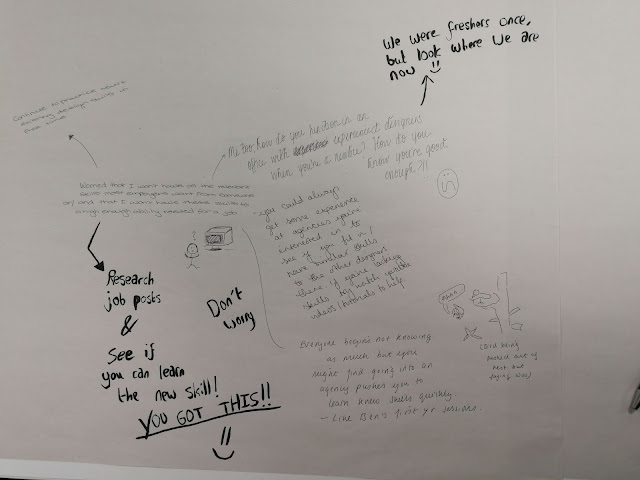 We were freshers once,
but look where we are
now
Continue to practice
existing design skills in
free time
Me too, how do you function in an
office with experienced designers
when you're a newbie? How do you
know you're good
enough?!!
Worried that I won't have all the
skills most employers want from someone
or/ and that I won't have these skills to
a high enough ability needed for a job
- you could always
get some experience
at agencies you're
interested in to
see if you fit in /
have similar skills
to the other designers
there. if you're lacking
skills try watch youtube
videos/tutorials to help
Research
job posts
&
See if
you can learn
the new skill!
YOU GOT THIS!!
Don't
worry
Everyone begins not knowing
as much but you
might find going into an
agency pushes you to
learn new skills quickly
- Like Ben's first yr sessions.
(bird being
pushed out of
nest but
flying away)